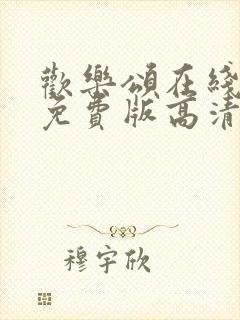 歡樂頌在綫
免費版高清
穆宇欣